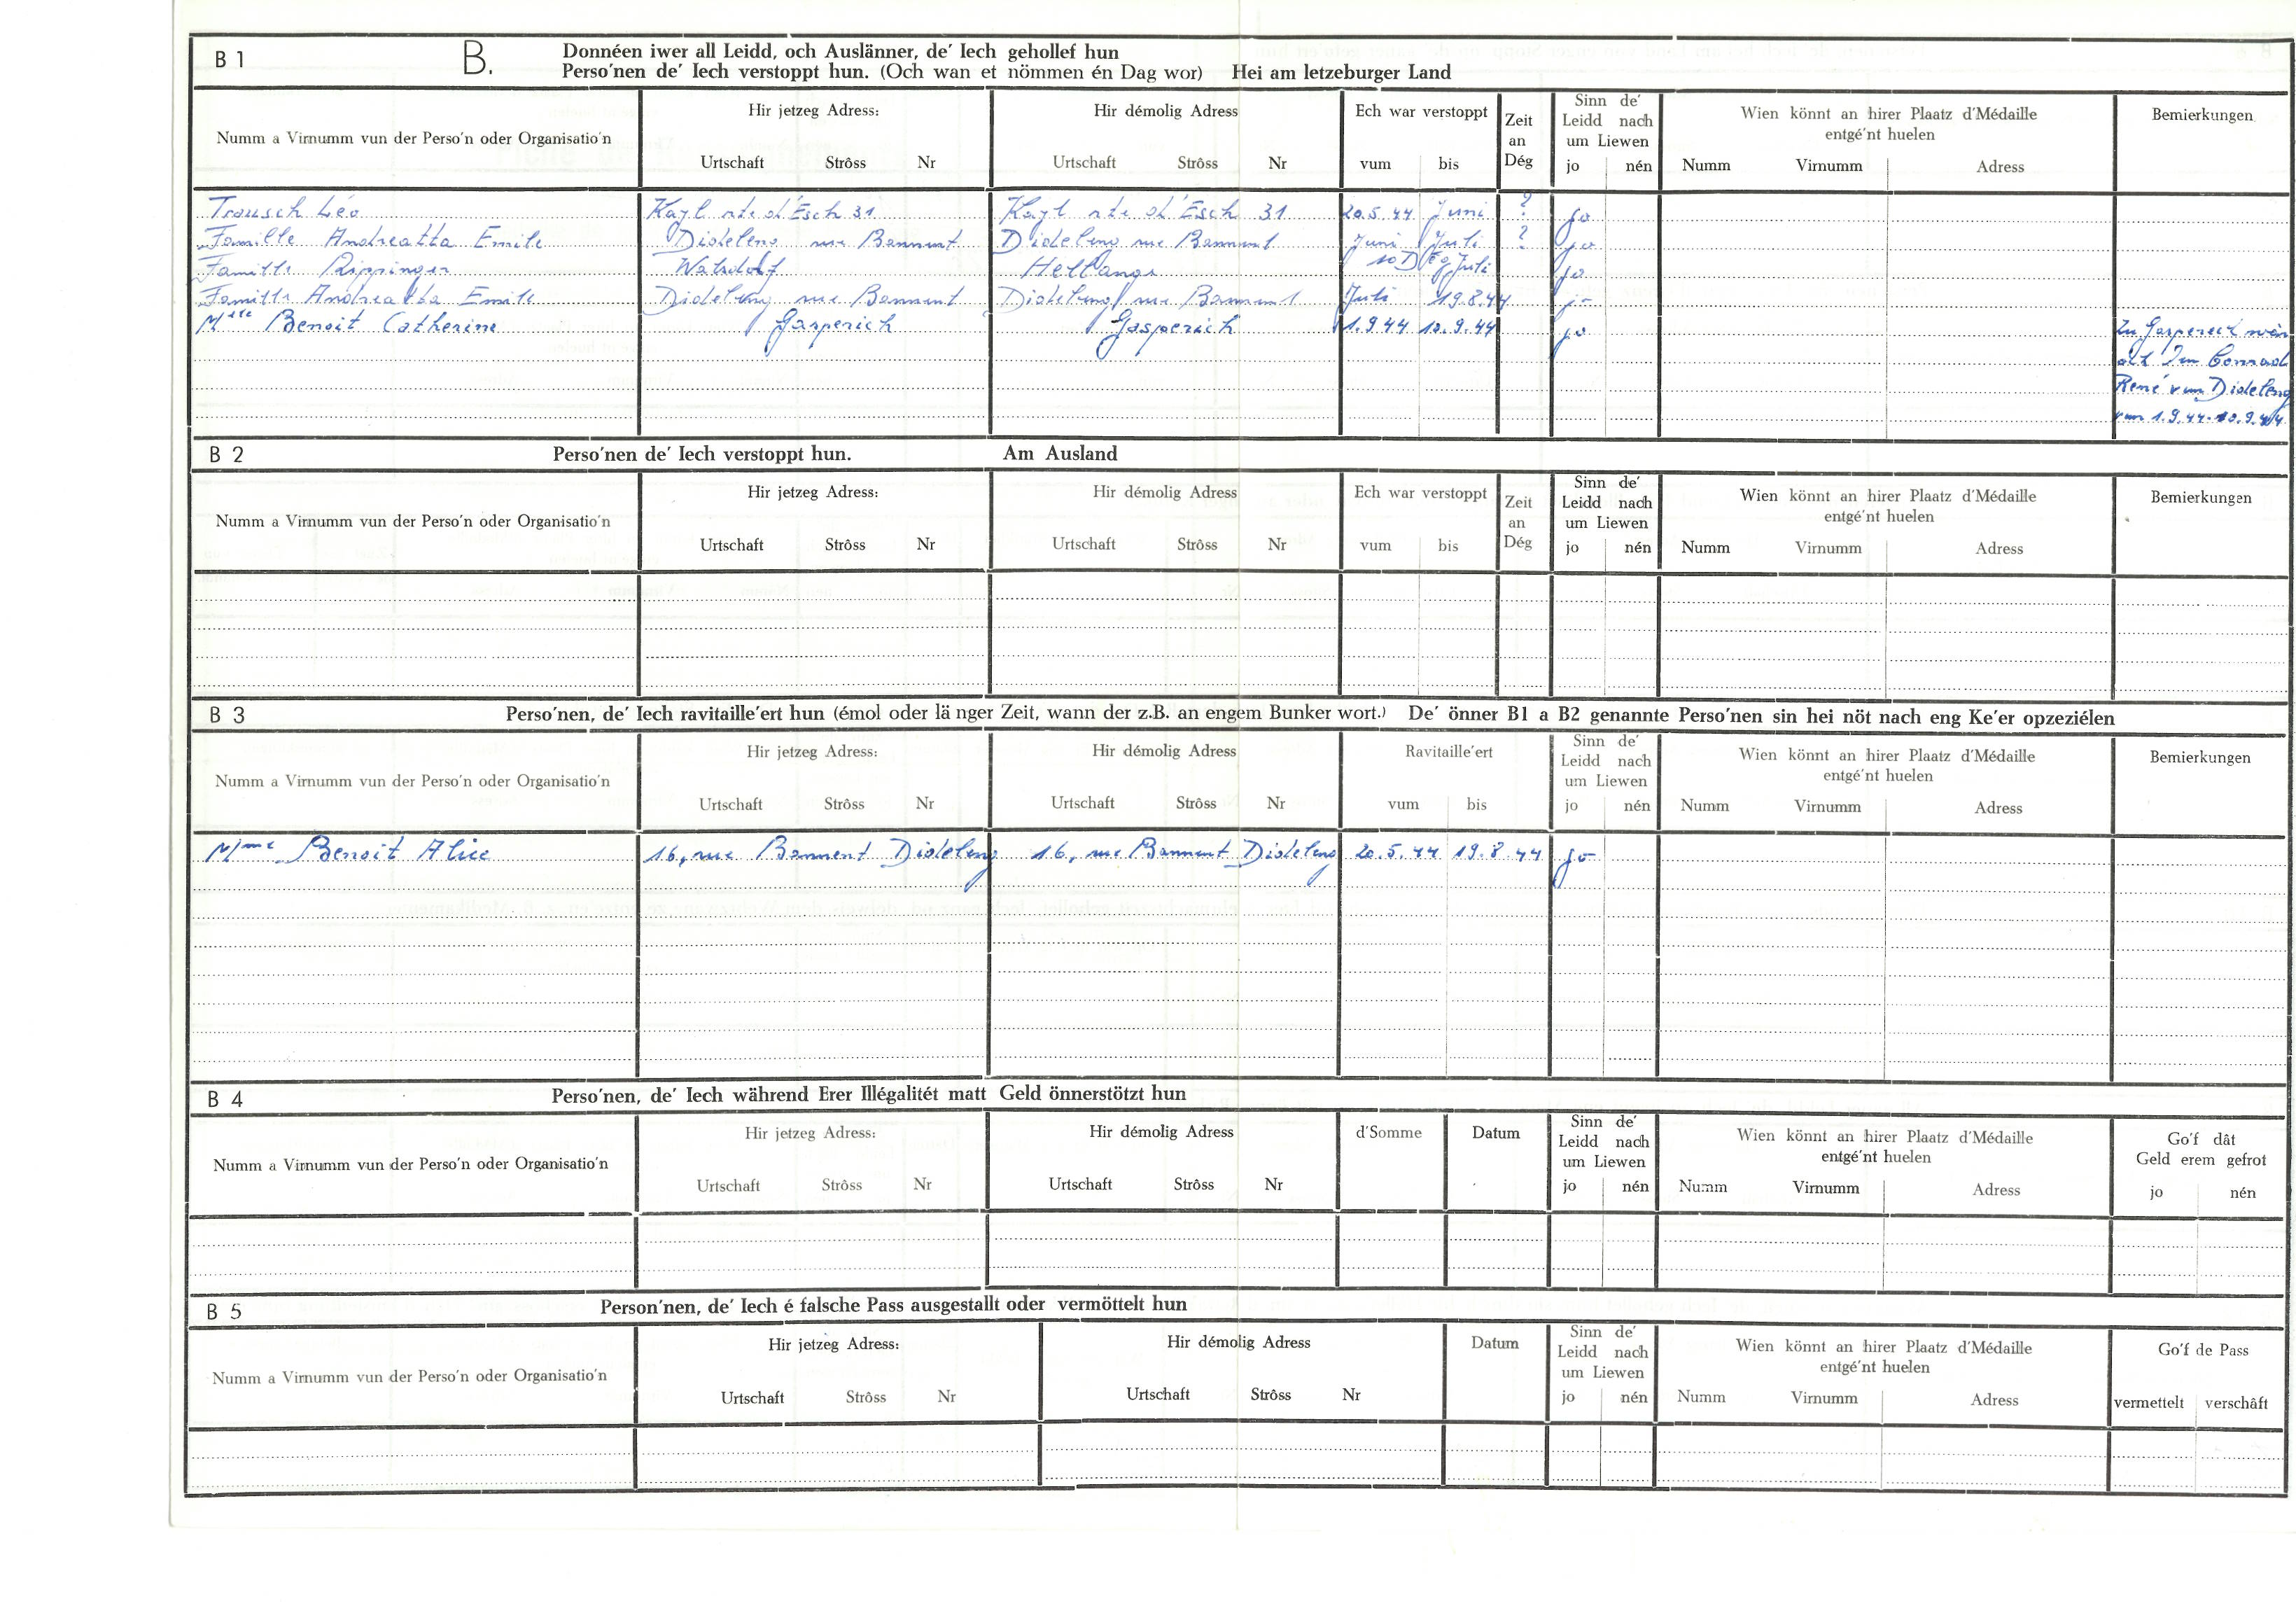 B 1 B. Donnéen iwer all Leidd, och Auslänner, de´ Iech gehollef hun
Perso´nen de´ Iech verstoppt hun. (Och wan et nömmen én Dag wor) Hei am letzeburger Land
Numm a Virnumm vun der Perso´n oder Organisatio´n
Hir jetzeg Adress:
Urtschaft Strôss Nr
Hir démolig Adress
Urtschaft Strôss Nr
Ech war verstoppt
vum bis
Zeit
an
Dég
Sinn de´
Leidd nach
um Liewen
jo nén
Wien könnt an hirer Plaatz d´Médaille
entgé´nt huelen
Numm Virnumm Adress
Bemierkungen
Trausch Léo Kayl rte d'Esch 31 Kayl rte d'Esch 31 20.5.44 Juni ? jo
Famille Andreatta Emile Dideleng rue Bannent Dideleng rue Bannent Juni Juli ? jo
Famille Rippinger Walsdorf Hellange 10 Deg Juli jo
Famille Andreatta Emile Dideleng rue Bannent Dideleng rue Bannent Juli 19.8.44 jo
Mlle Benoit Catherine Gasperich Gasperich 1.9.44 10.9.44 jo
Zu Gasperech
Conrad
René vun Dideleng
vum 1.9.44-10.9.44
B 2 Perso´nen de´ Iech verstoppt hun. Am Ausland
Numm a Virnumm vun der Perso´n oder Organisatio´n
Hir jetzeg Adress:
Urtschaft Strôss Nr
Hir démolig Adress
Urtschaft Strôss Nr
Ech war verstoppt
vum bis
Zeit
an
Dég
Sinn de´
Leidd nach
um Liewen
jo nén
Wien könnt an hirer Plaatz d´Médaille
entgé´nt huelen
Numm Virnumm Adress
Bemierkungen
B 3 Perso´nen, de´ Iech ravitaille´ert hun (émol oder lä nger Zeit, wann der z.B. an engem Bunker wort.) De´ önner B1 a B2 genannte Perso´nen sin hei nöt nach eng Ke´er opzeziélen
Numm a Virnumm vun der Perso´n oder Organisatio´n
Hir jetzeg Adress:
Urtschaft Strôss Nr
Hir démolig Adress
Urtschaft Strôss Nr
Ravitaille´ert
vum bis
Sinn de´
Leidd nach
um Liewen
jo nén
Wien könnt an hirer Plaatz d´Médaille
entgé´nt huelen
Numm Virnumm Adress
Bemierkungen
Mme Benoit Alice 16, rue Bannent Dideleng 16, rue Bannent Dideleng 20.5.44 19.8.44 jo
B 4 Perso´nen, de´ Iech während Erer Illégalitét matt Geld önnerstötzt hun
Numm a Virnumm vun der Perso´n oder Organisatio´n
Hir jetzeg Adress:
Urtschaft Strôss Nr
Hir démolig Adress
Urtschaft Strôss Nr
d´Somme
Datum
Sinn de´
Leidd nach
um Liewen
jo nén
Wien könnt an hirer Plaatz d´Médaille
entgé´nt huelen
Numm Virnumm Adress
Go´f dât
Geld erem gefrot
jo nén
B 5 Person´nen, de´ Iech é falsche Pass ausgestallt oder vermöttelt hun
Numm a Virnumm vun der Perso´n oder Organisatio´n
Hir jetzeg Adress:
Urtschaft Strôss Nr
Hir démolig Adress
Urtschaft Strôss Nr
Datum
Sinn de´
Leidd nach
um Liewen
jo nén
Wien könnt an hirer Plaatz d´Médaille
entgé´nt huelen
Numm Virnumm Adress
Go´f de Pass
vermettelt verschâft